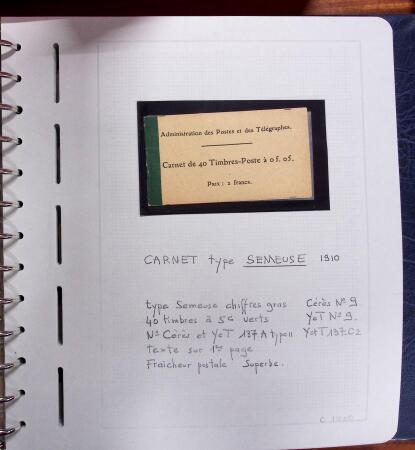 Administration des Postes et des Télégraphes.
Carnet de 40 Timbres-Poste à 0 f. 05.
Prix : 2 francs.
CARNET type SEMEUSE 1910
type Semeuse chiffres gras Cérès N° 9
40 timbres à 5c verts YeT N° 9.
N° Cérès et YeT 137 A type II YetT 137C2
texte sur 1ère page
Fraîcheur postale Superbe.